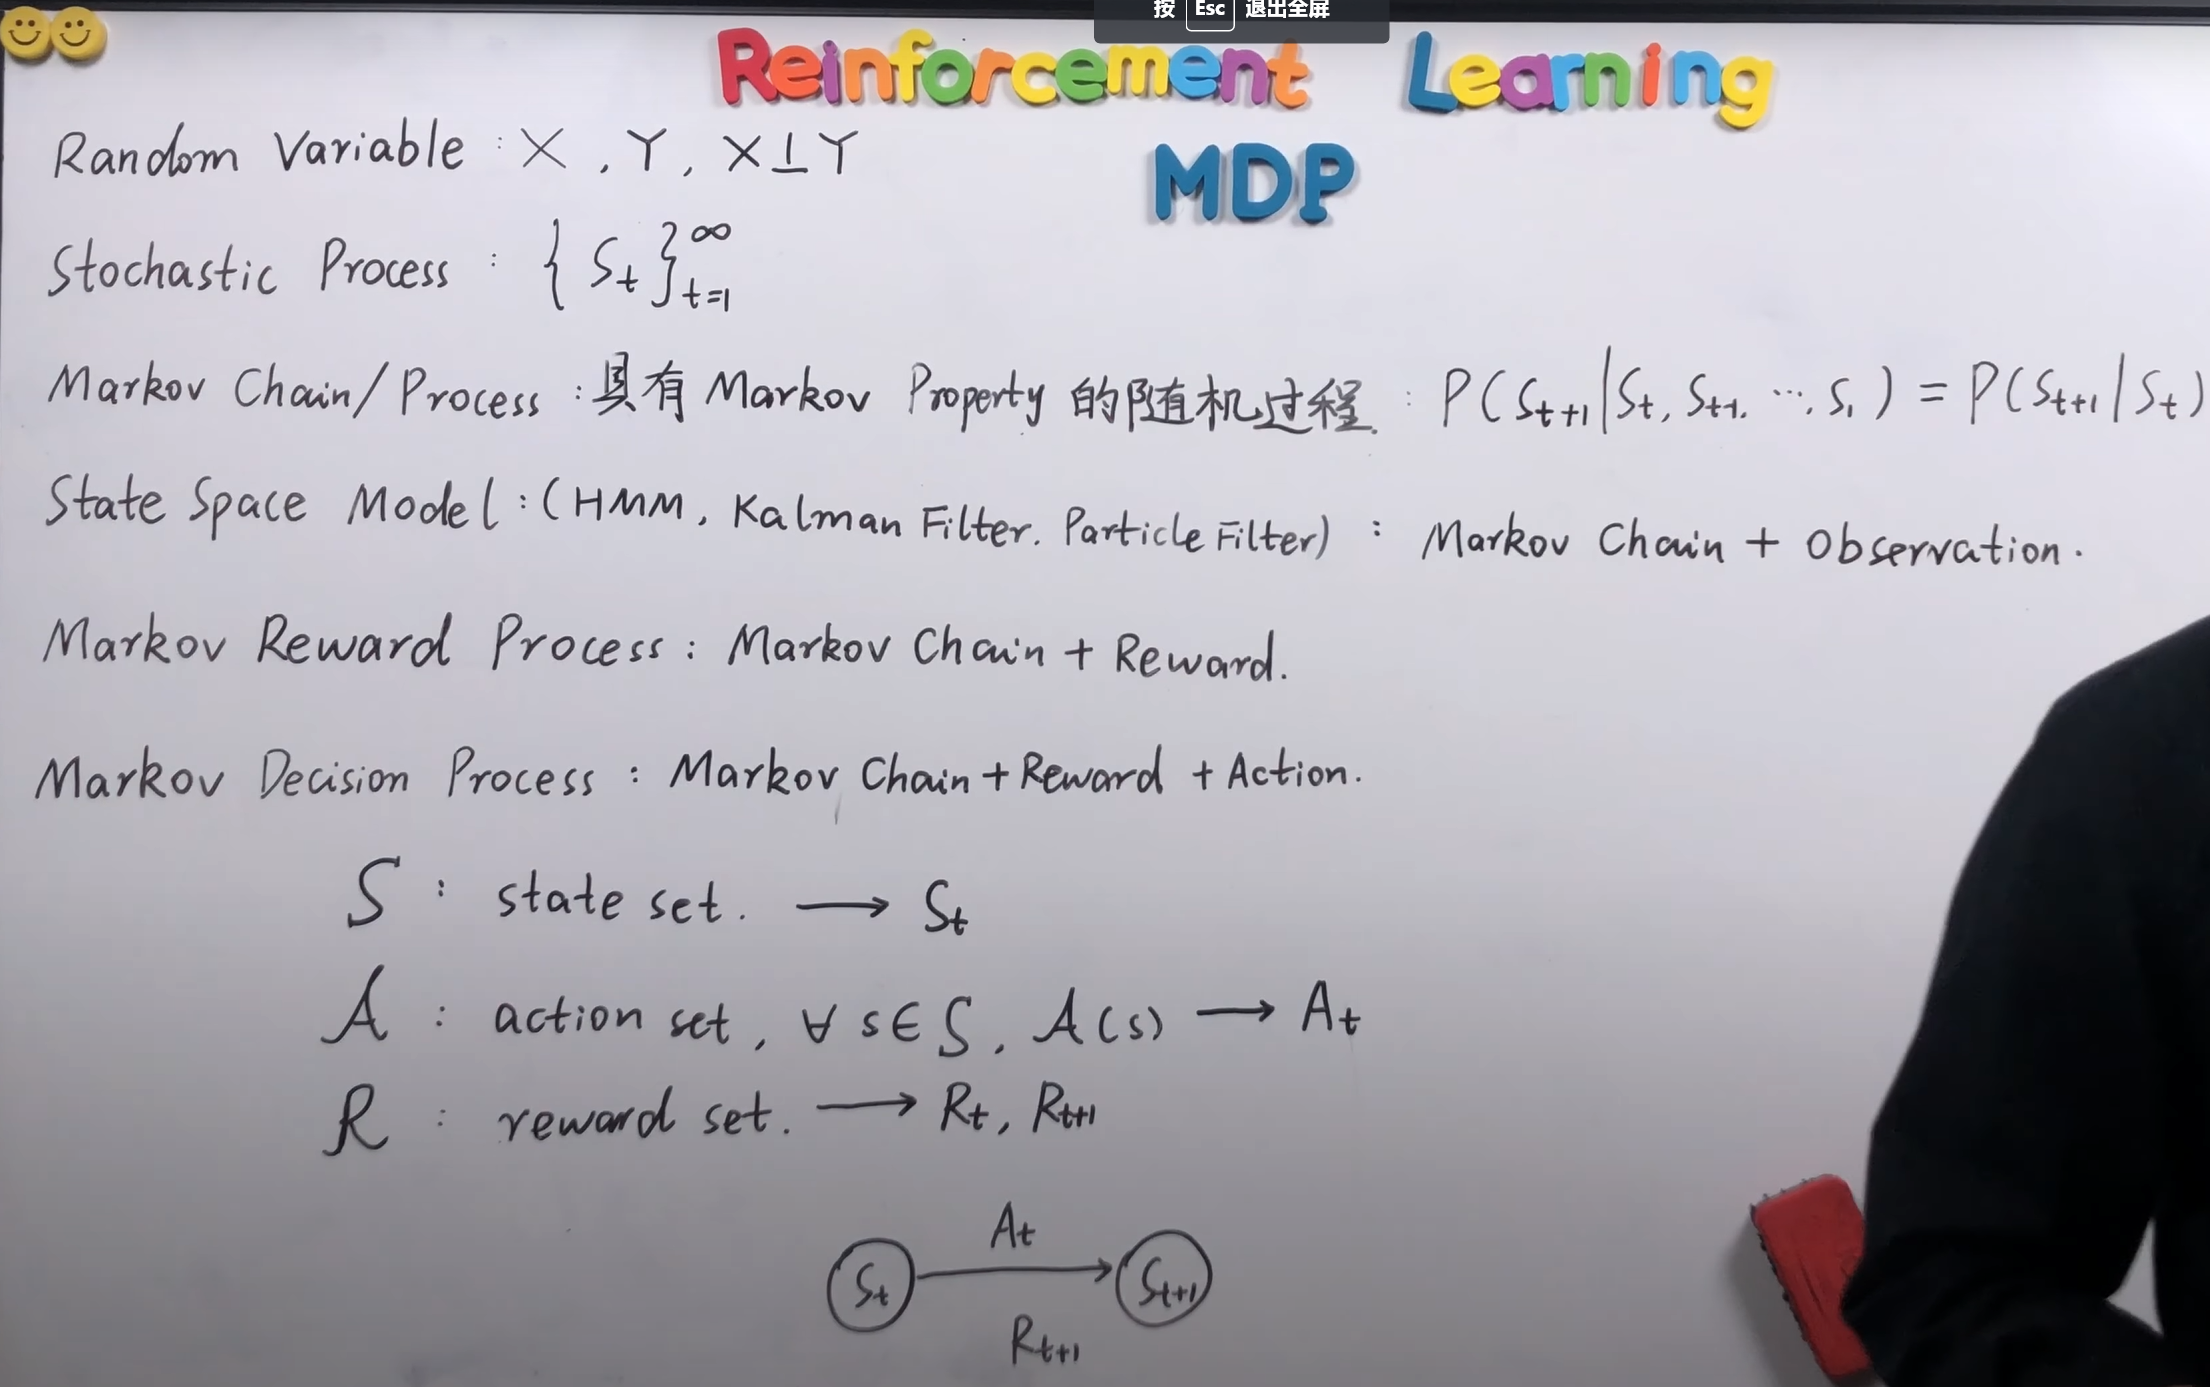 按 Esc 退出全屏
Reinforcement Learning
MDP
Random Variable : X , Y , X⊥Y
Stochastic Process : { S_t }_{t=1}^∞
Markov Chain/Process : 具有 Markov Property 的随机过程. : P(S_{t+1}|S_t, S_{t-1}, ⋯, S_1) = P(S_{t+1}|S_t)
State Space Model : (HMM, Kalman Filter. Particle Filter) : Markov Chain + Observation.
Markov Reward Process : Markov Chain + Reward.
Markov Decision Process : Markov Chain + Reward + Action.
S : state set. ⟶ S_t
A : action set, ∀ s∈S, A(s) ⟶ A_t
R : reward set. ⟶ R_t, R_{t+1}
A_t
S_t ⟶ S_{t+1}
R_{t+1}